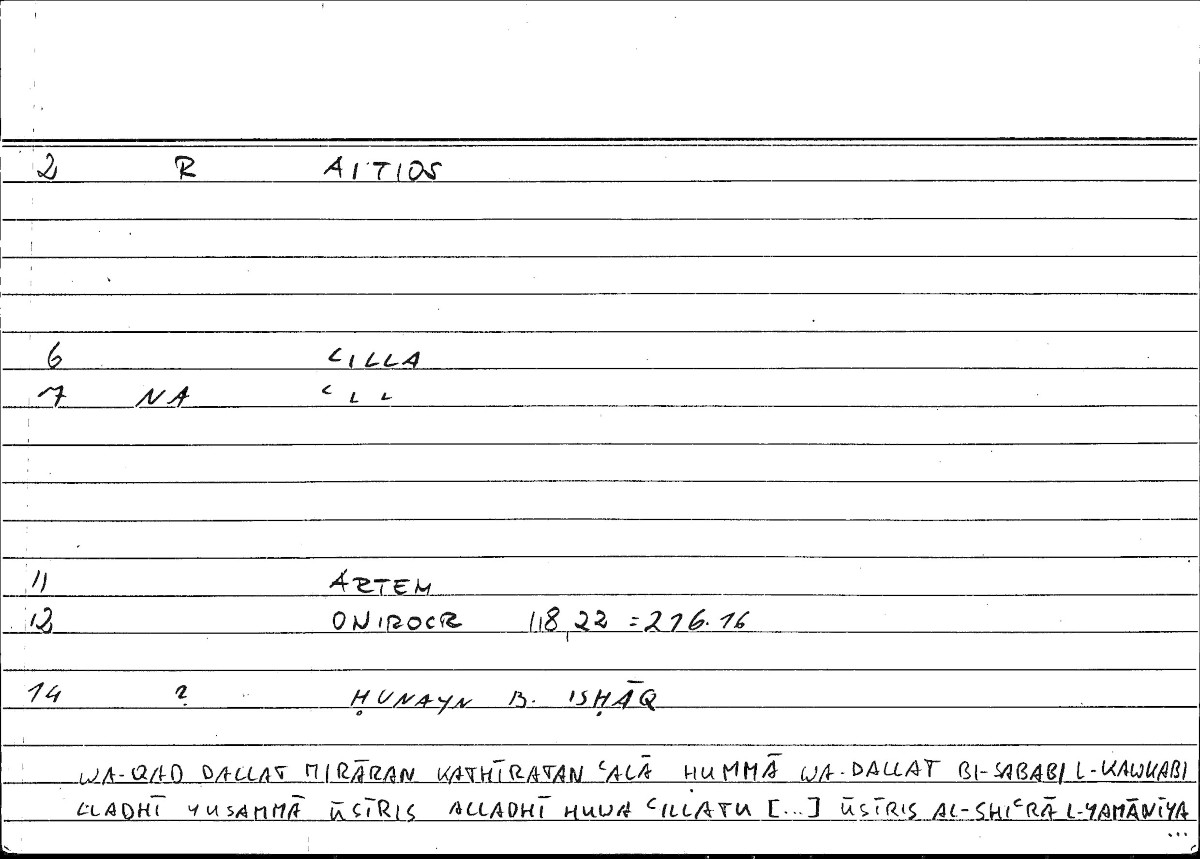 2 R AITIOS
6 ʿILLA
7 NA ʿLL
11 ARTEM
12 ONIROCR 118,22 = 216.16
14 ? ḤUNAYN B. ISḤĀQ
WA-QAD DALLAT MIRĀRAN KATHĪRATAN ʿALĀ HUMMĀ WA-DALLAT BI-SABABI L-KAWKABI
LLADHĪ YUSAMMĀ ŪSĪRIS ALLADHĪ HUWA ʿILLATU [...] ŪSĪRIS AL-SHIʿRĀ L-YAMĀNĪYA
...